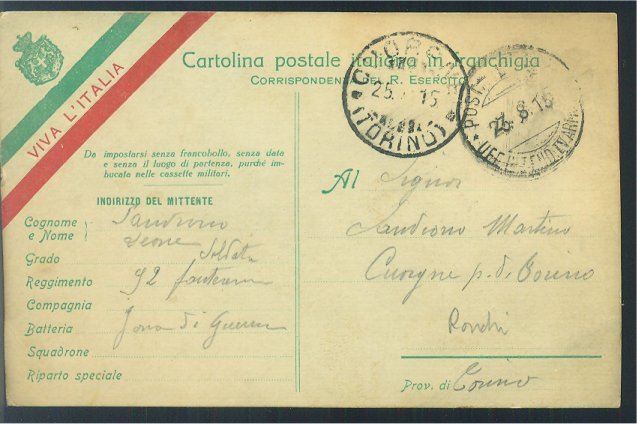 VIVA L'ITALIA
Cartolina postale italiana in franchigia
CORRISPONDENZA DEL R. ESERCITO
25. 15
(TORINO)
POSTA
25.8.15
Da impostarsi senza francobollo, senza data
e senza il luogo di partenza, purché im-
bucata nelle cassette militari.
INDIRIZZO DEL MITTENTE
Cognome
e Nome
Leone
Grado Soldato
Reggimento 92 fanteria
Compagnia
Batteria Zona di Guerra
Squadrone
Riparto speciale
Al Signor
Martino
Cuorgne p. di Torino
Ronchi
Prov. di Torino